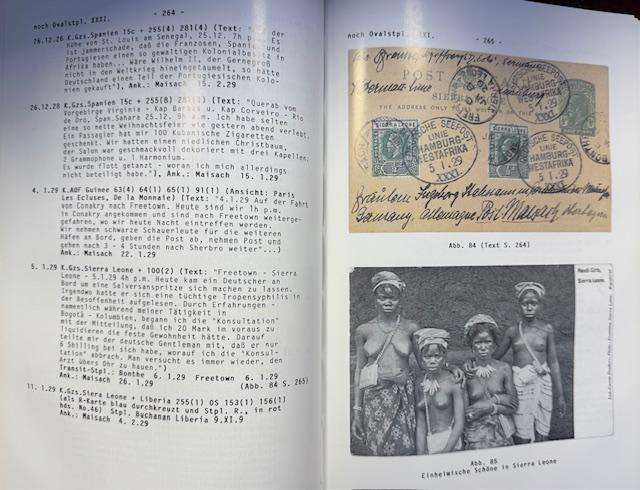 noch Ovalstpl. XXXI.
- 264 -
26.12.26 K.Gzs.Spanien 15c + 255(4) 281(4) (Text: "
der
Höhe von St. Louis am Senegal, 25.12. 7h p.m. Es
ist jammerschade, daß die Franzosen, Spanier und
Portugiesen einen so gewaltigen Kolonialbesitz in
Afrika haben... Wäre Wilhelm II, der Gernegroß
nicht in den Weltkrieg hineingetaumelt, so hätte
Deutschland einen Teil der Portugiesischen Kolo-
nien gekauft"). Ank.: Maisach 15. 2.29
26.12.28 K.Gzs.Spanien 15c + 255(8)
(Text: "Querab vom
Vorgebirge Virginia - Kap Barbas u. Kap Corveiro - Rio
de Oro, Span.Sahara 25.12. 9h a.m. Ich habe selten
eine so nette Weihnachtsfeier wie gestern abend verlebt.
Ein Passagier hat mir 100 Kubanische Zigaretten
geschenkt. Wir hatten einen niedlichen Christbaum,
der Salon war geschmackvoll dekoriert mit drei Kapellen:
2 Grammophone u. 1 Harmonium.
Es wurde flott getanzt - woran ich mich allerdings
nicht beteiligt habe."). Ank.: Maisach 15. 1.29
4. 1.29 K.AOF Guinee 63(4) 64(1) 65(1) 91(1) (Ansicht: Paris
Les Ecluses, De la Monnaie) (Text: "4.1.29 Auf der Fahrt
von Conakry nach Freetown. Heute sind wir 1h p.m.
in Conakry angekommen und sind nach Freetown weiterge-
gefahren, wo wir heute Nacht eintreffen werden.
Wir nehmen schwarze Schauerleute für die weiteren
Häfen an Bord, geben die Post ab, nehmen Post und
gehen nach 3 - 4 Stunden nach Sherbro weiter"...)
Ank.: Maisach 22. 1.29
5. 1.29 K.Gzs.Sierra Leone + 100(2) (Text: "Freetown - Sierra
Leone - 5.1.29 4h p.m. Heute kam ein Deutscher an
Bord um eine Salversanspritze sich machen zu lassen.
Irgendwo hatte er sich eine tüchtige Tropensyphilis in
der Besoffenheit aufgelesen. Durch Erfahrungen -
namentlich während meiner Tätigkeit in
Bogotà - Kolumbien, begann ich die "Konsultation"
mit der Mitteilung, daß ich 20 Mark im voraus zu
liquidieren die feste Gewohnheit hätte. Darauf
teilte mir der deutsche Gentleman mit, daß er nur
6 Shilling bei sich habe, worauf ich die "Konsul-
tation" abbrach. Man versucht es immer wieder, den
Arzt übers Ohr zu hauen.")
Transit-Stpl.: Bonthe 6. 1.29 Freetown 6. 1.29
Ank.: Maisach 26. 1.29 (Abb. 84 S. 265)
11. 1.29 K.Gzs.Sierra Leone + Liberia 255(1) OS 153(1) 156(1)
(als R-Karte blau durchkreuzt und Stpl. R., in rot
hds. No.46) Stpl. Buchanan Liberia 9.XI.9
Ank.: Maisach 4. 2.29
noch Ovalstpl. XXXI.
- 265 -
POST
SIERRA
THE ADDRESS ONLY
SIERRA LEONE
DEUTSCHE SEEPOST
LINIE
HAMBURG-
WESTAFRIKA
5.1.29
XXXI
SCHE SEEPOST
LINIE
HAMBURG-
WESTAFRIKA
5.1.29
XXXI
Fräulein Ingeborg
Germany Allemagne Post Maisach
Abb. 84 (Text S. 264)
Mendi Girls,
Sierra Leone.
Abb. 85
Einheimische Schöne in Sierra Leone